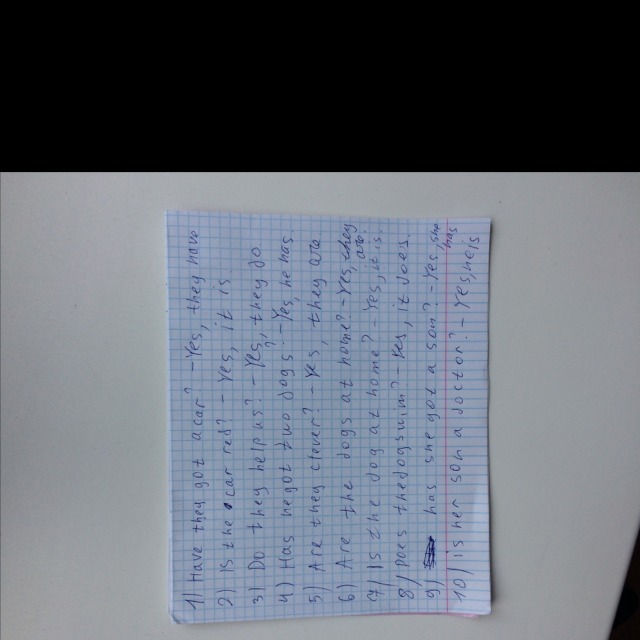 1) Have they got a car? - Yes, they have
2) Is the car red? - Yes, it is
3) Do they help us? - Yes, they do
4) Has he got two dogs - Yes, he has
5) Are they clever? - Yes, they are
6) Are the dogs at home? - Yes, they are.
7) Is the dog at home? - Yes, it is
8) Does the dog swim? - Yes, it does
9) has she got a son? - Yes she has
10) is her son a doctor? - Yes, he is